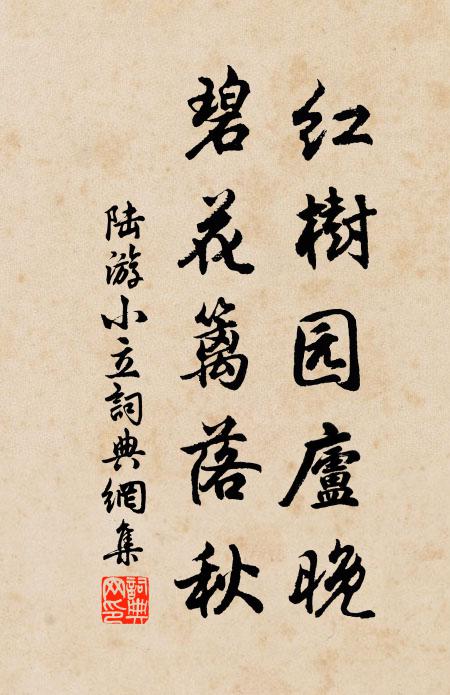 红樹园廬晚
碧花籬落秋
陆游小立詞典網集
詞典网印